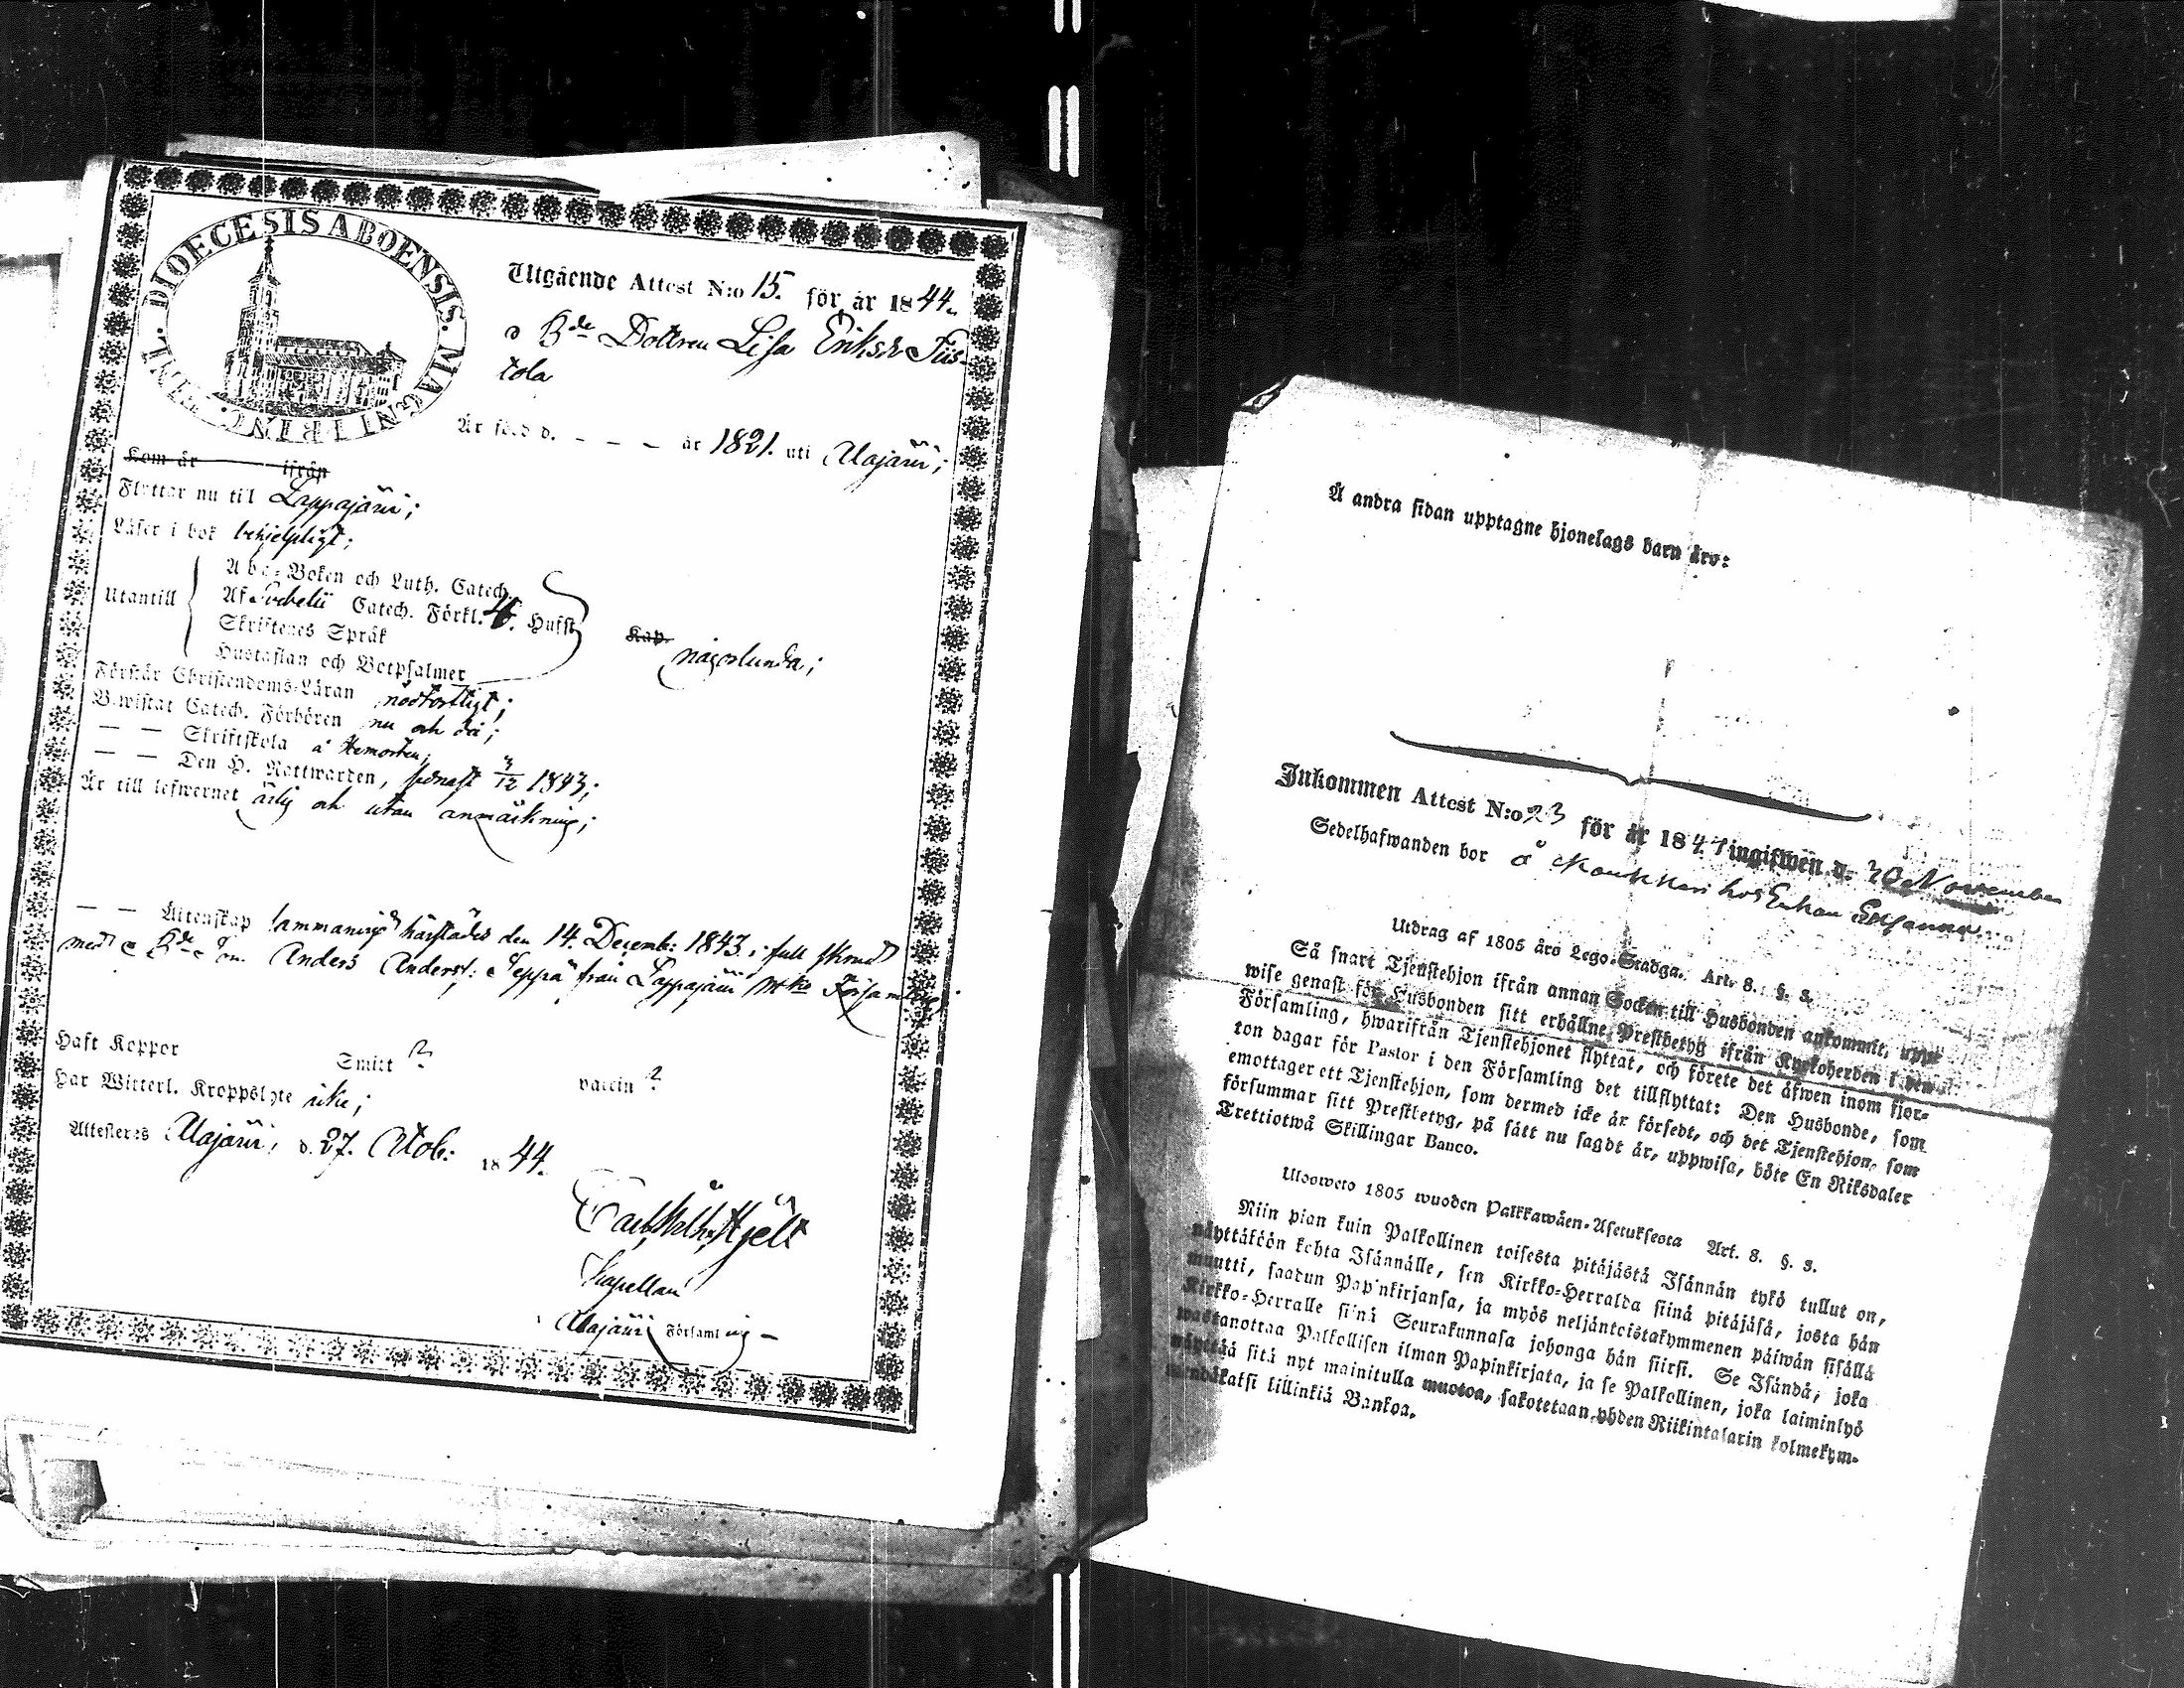 DIOECESIS ABOENSIS. MAGNI PRINC. FINL.
Utgående Attest N:o 15. för år 1844.
Bde Dottren Lisa Eriksdr Tiis-
tola
Är född d. - - - år 1821. uti Alajärvi;
Kom år ifrån
Flyttar nu till Lappajärvi;
Läser i bok behjelpligt;
Utantill
A b c-Boken och Luth. Catech.
Af Svebelii Catech. Förkl. 4. Hufst.
Skriftenes Språk
Hustaflan och Botpsalmer
Kap.
någorlunda;
Förstår Christendoms-Läran nödtorftigt;
Bewistat Catech. Förhören nu och då;
— — Skriftskola å Hemorten;
— — Den H. Nattwarden, senast 3/12 1843;
Är till lefwernet ärlig och utan anmärkning;
— — Äktenskap sammanvigd härstädes den 14. Decemb: 1843. i full skrud
med Bde Anders Anderss: Seppä från Lappajärvi Församling;
Haft Koppor Smitt ? vaccin ?
Har Witterl. Kroppslyte icke;
Attesteras Alajärvi, d. 27. Octob: 1844.
Carl Wilh: Hjelt
Kapellan
Alajärvi Församling —
Å andra sidan upptagne hjonelags barn äro:
Inkommen Attest N:o 23 för år 1844 ingifwen d. November
Sedelhafwanden bor å hos Enkan Susanna
Utdrag af 1805 års Lego-Stadga. Art. 8. §. 3.
Så snart Tjenstehjon ifrån annan Socken till Husbonden ankommit, upp-
wise genast för Husbonden sitt erhållne Prestbetyg ifrån Kyrkoherden i den
Församling, hwarifrån Tjenstehjonet flyttat, och förete det äfwen inom fjor-
ton dagar för Pastor i den Församling det tillflyttat: Den Husbonde, som
emottager ett Tjenstehjon, som dermed icke är försedt, och det Tjenstehjon, som
försummar sitt Prestbetyg, på sätt nu sagdt är, uppwisa, böte En Riksdaler
Trettiotwå Skillingar Banco.
Ulosweto 1805 wuoden Palkkawäen-Asetuksesta Art. 8. §. 3.
Niin pian kuin Palkollinen toisesta pitäjästä Isännän tykö tullut on,
näyttäköön kohta Isännälle, sen Kirkko-Herralda siinä pitäjäsä, josta hän
muutti, saadun Papinkirjansa, ja myös neljäntoistakymmenen päiwän sisällä
Kirkko-Herralle siinä Seurakunnasa johonga hän siirsi. Se Isändä, joka
wastanottaa Palkollisen ilman Papinkirjata, ja se Palkollinen, joka laiminlyö
näyttää sitä nyt mainitulla muotoa, sakotetaan yhden Riikintalarin kolmekym-
mendäkaksi killinkiä Bankoa.